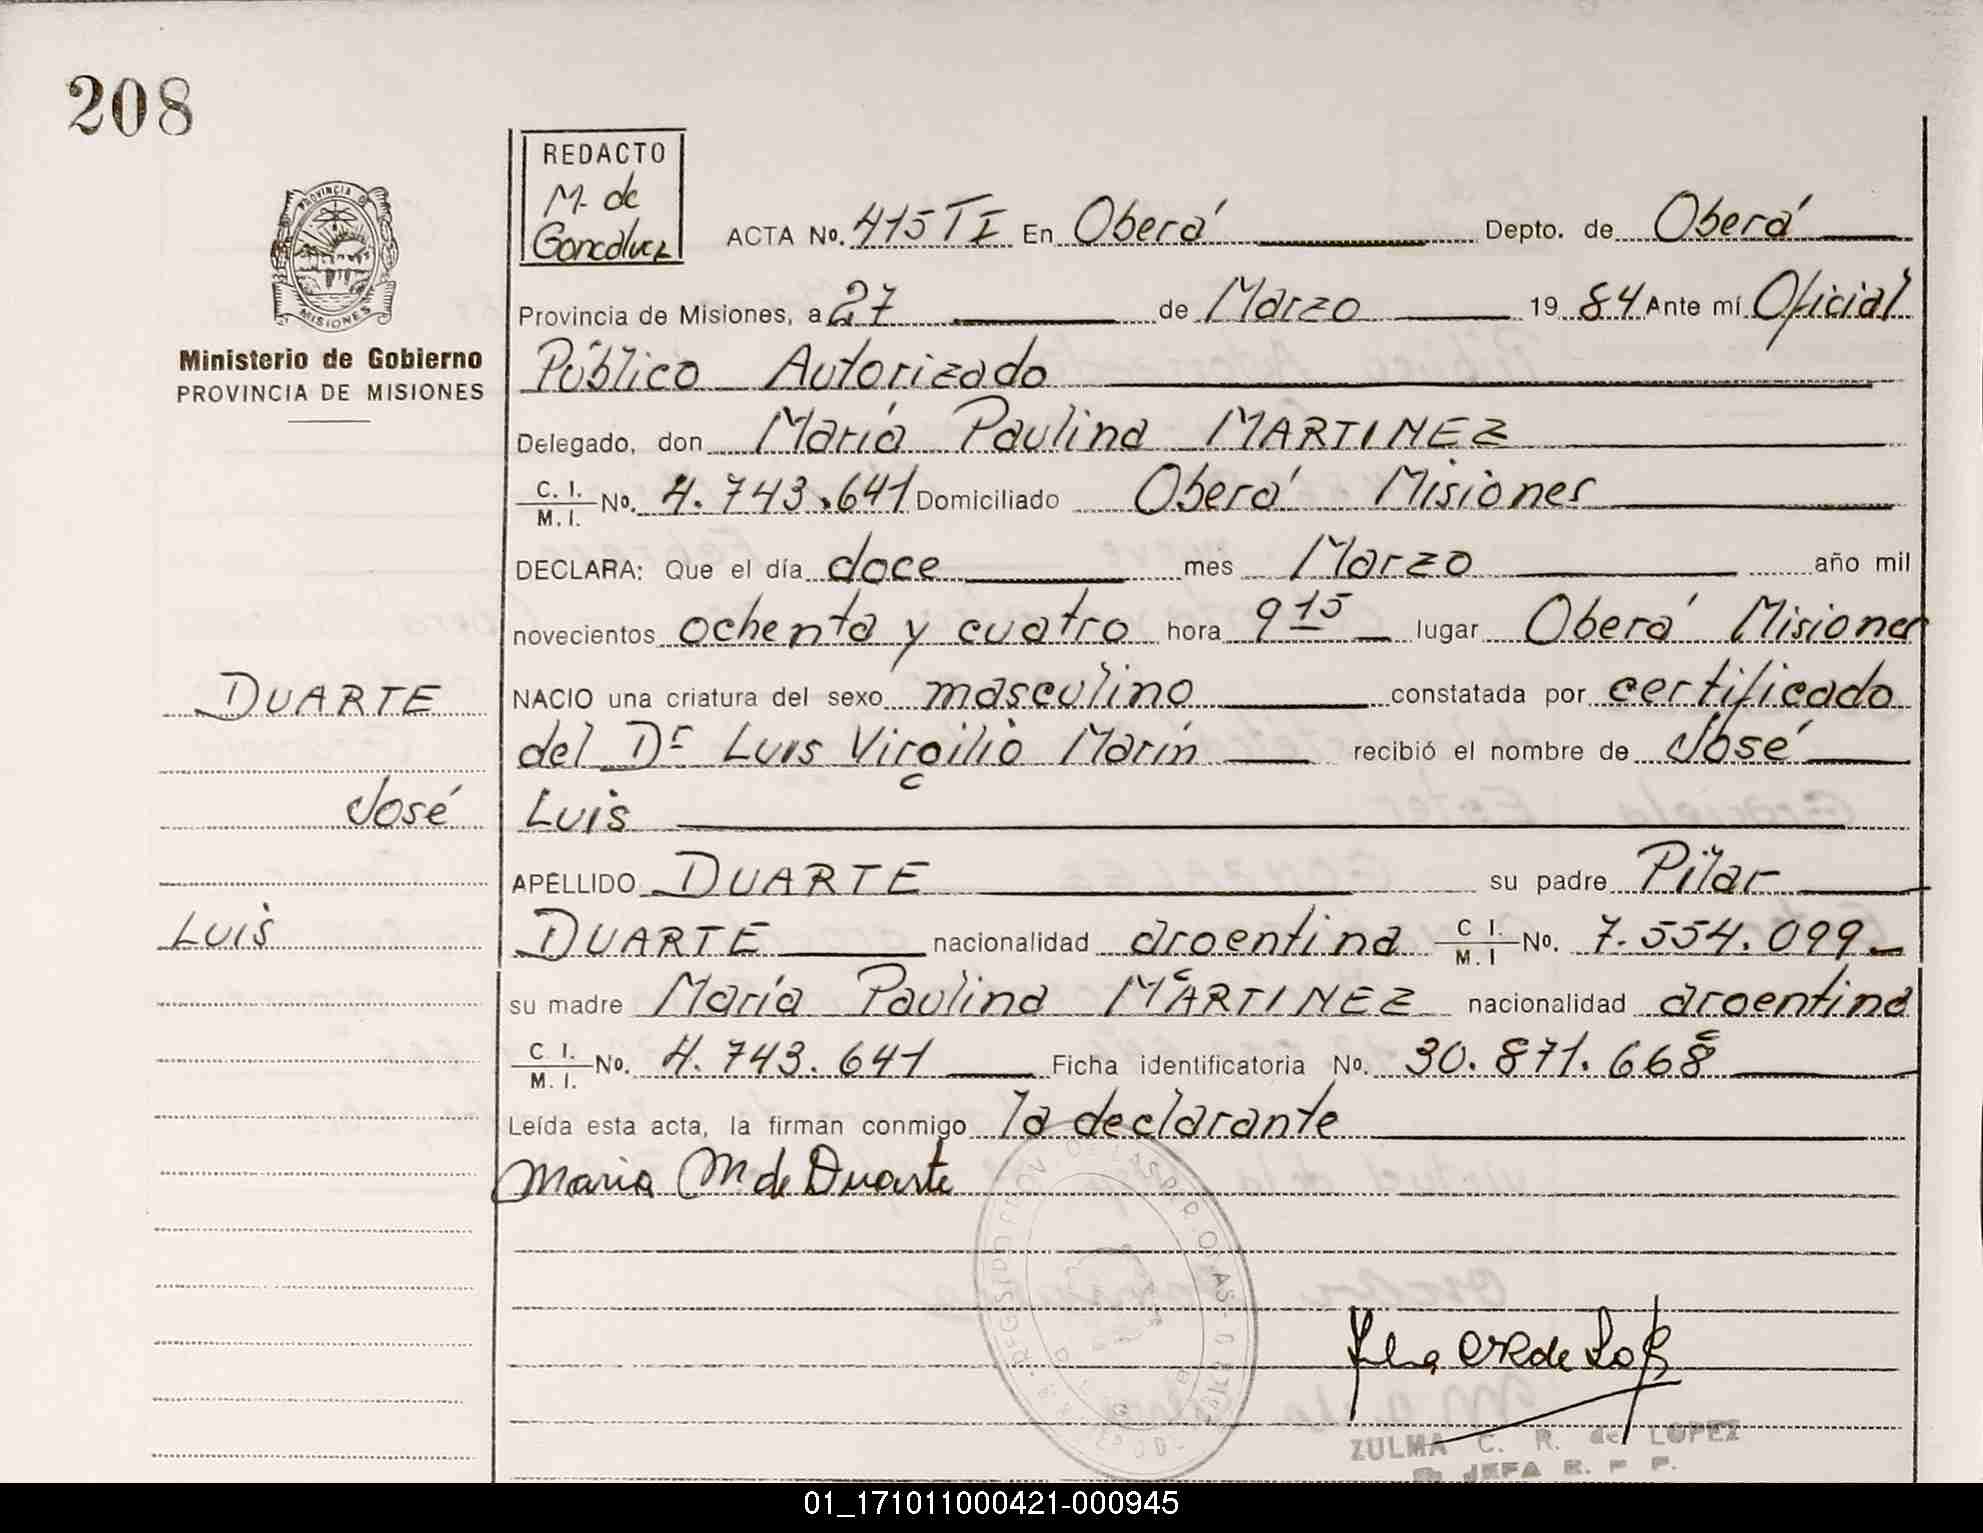 208
REDACTO
M. de
Goncalvez
PROVINCIA DE
MISIONES
Ministerio de Gobierno
PROVINCIA DE MISIONES
ACTA No. 415 TI En Oberá Depto. de Oberá
Provincia de Misiones, a 27 de Marzo 19 84 Ante mí Oficial
Público Autorizado
Delegado, don María Paulina MARTINEZ
C. I. / M. I. No. 4.743.641 Domiciliado Oberá Misiones
DECLARA: Que el día doce mes Marzo año mil
novecientos ochenta y cuatro hora 9 15 lugar Oberá Misiones
DUARTE
NACIO una criatura del sexo masculino constatada por certificado
del Dr Luis Virgilio Marín recibió el nombre de José
José
Luis
APELLIDO DUARTE su padre Pilar
Luis
DUARTE nacionalidad argentina C I. / M. I No. 7.554.099
su madre María Paulina MARTINEZ nacionalidad argentina
C I. / M. I. No. 4.743.641 Ficha identificatoria No. 30.871.668
Leída esta acta, la firman conmigo la declarante
Maria M de Duarte
ZULMA C. R. de LOPEZ
JEFA R. P P.
01_171011000421-000945